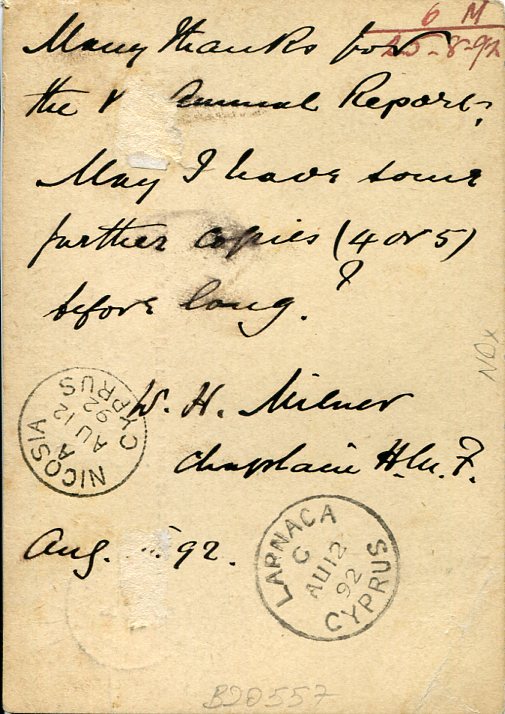 6 M
25-8-92
Many thanks for
the V Annual Report.
May I have some
further copies (4 or 5)
before long.?
W. H. Milner
Chaplain H.M.F.
Aug. 92.
NICOSIA
A
AU 12
92
CYPRUS
LARNACA
C
AU 12
92
CYPRUS
NOx
B20557